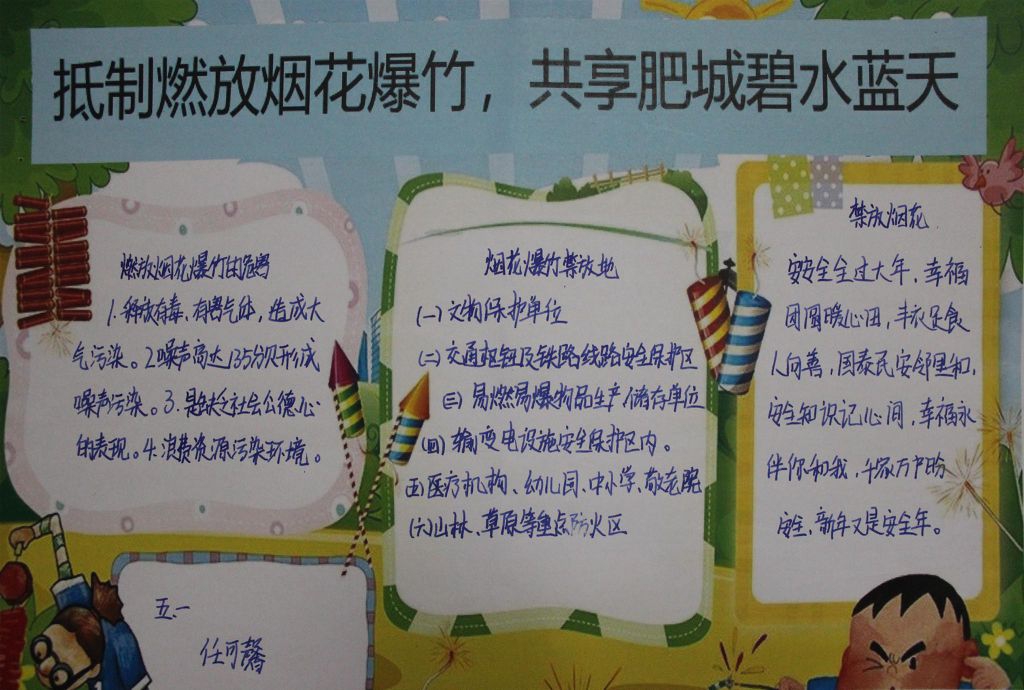 抵制燃放烟花爆竹，共享肥城碧水蓝天
燃放烟花爆竹的危害
1.释放有毒、有害气体，造成大
气污染。2噪声高达135分贝形成
噪声污染。3.是缺乏社会公德心
的表现。4.浪费资源污染环境。
烟花爆竹禁放地
(一)文物保护单位
(二)交通枢纽及铁路线路安全保护区
(三)易燃易爆物品生产、储存单位
(四)输变电设施安全保护区内。
(五)医疗机构、幼儿园、中小学、敬老院
(六)山林、草原等重点防火区
禁放烟花
安安全全过大年，幸福
团圆暖心田，丰衣足食
人向善，国泰民安邻里和，
安全知识记心间，幸福永
伴你和我，千家万户盼
安全，新年又是安全年。
五.一
任可馨